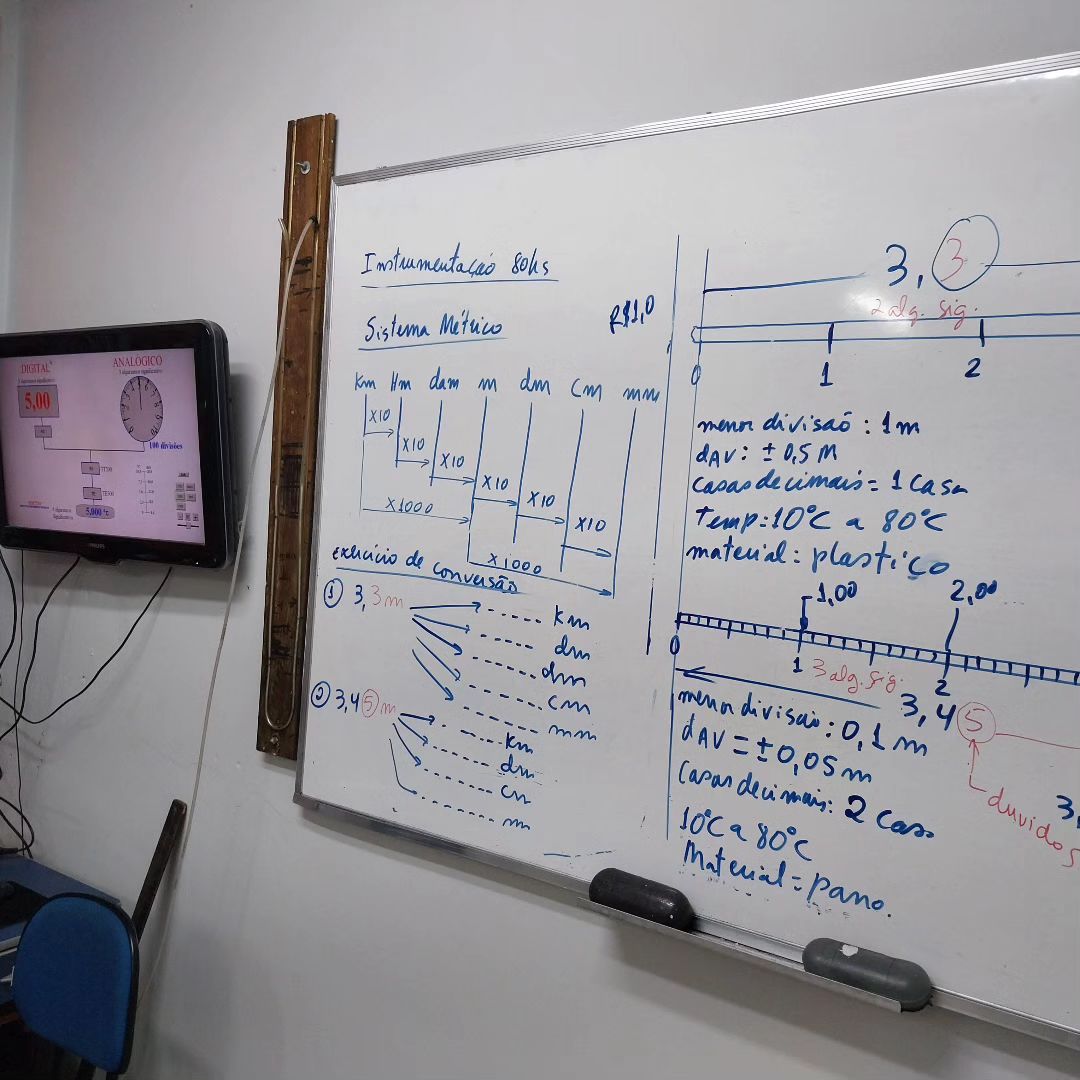 DIGITAL
5,00
ANALÓGICO
100 divisões
5,000 °c
PHILIPS
Instrumentação 80hs
Sistema Métrico
R$1,0
Km Hm dam m dm cm mm
x10
x10
x10
x10
x10
x10
x1000
x1000
exercício de conversão
① 3,3m
km
dm
dm
cm
mm
② 3,45 m
km
dm
cm
m
3,3
2 alg. sig.
0
1
2
menor divisão : 1m
dAV : ± 0,5 m
casas decimais = 1 casa
temp: 10°C a 80°C
material: plastico
1,00
2,00
0
1
2
3 alg. sig.
3,45
menor divisão : 0,1 m
dAV = ± 0,05 m
Casas decimais: 2 casas
duvidos
3,
10°C a 80°C
Material = pano.